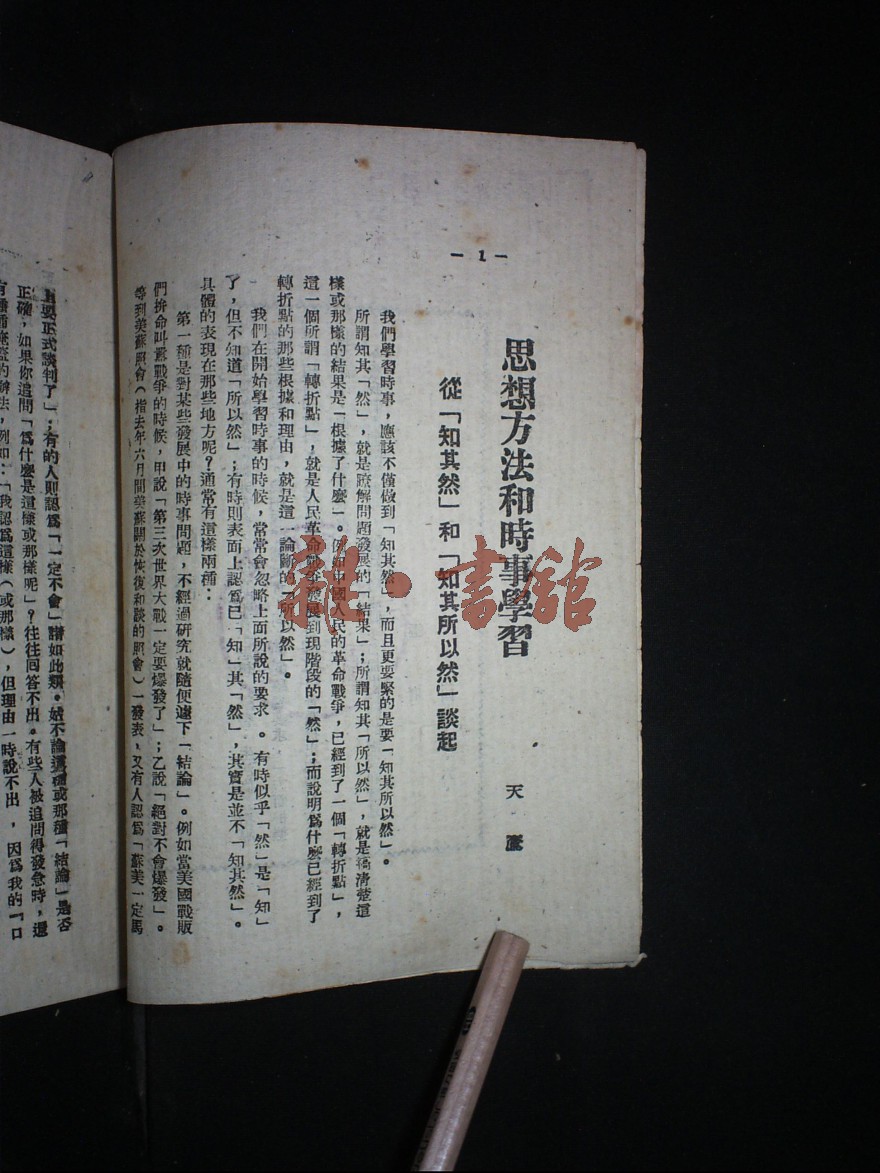 — 1 —
思想方法和時事學習
天
從「知其然」和「知其所以然」談起
我們學習時事，應該不僅做到「知其然」，而且更要緊的是要「知其所以然」。
所謂知其「然」，就是瞭解問題發展的「結果」；所謂知其「所以然」，就是搞清楚這
樣或那樣的結果是「根據了什麼」。例如中國人民的革命戰爭，已經到了一個「轉折點」，
這一個所謂「轉折點」，就是人民革命戰爭發展到現階段的「然」；而說明爲什麼已經到了
轉折點的那些根據和理由，就是這一論斷的「所以然」。
我們在開始學習時事的時候，常常會忽略上面所說的要求。有時似乎「然」是「知」
了，但不知道「所以然」；有時則表面上認爲已「知」其「然」，其實是並不「知其然」。
具體的表現在那些地方呢？通常有這樣兩種：
第一種是對某些發展中的時事問題，不經過研究就隨便遽下「結論」。例如當美國戰販
們拚命叫囂戰爭的時候，甲說「第三次世界大戰一定要爆發了」；乙說「絕對不會爆發」。
等到美蘇照會（指去年六月間美蘇關於恢復和談的照會）一發表，又有人認爲「蘇美一定馬
要正式談判了」；有的人則認爲「一定不會」諸如此類。姑不論這種或那種「結論」是否
正確，如果你追問「爲什麼是這樣或那樣呢」？往往回答不出。有些人被追問得發急時，還
有 的辦法，例如：「我認爲這樣（或那樣），但理由一時說不出，因爲我的「口
雜·書舘